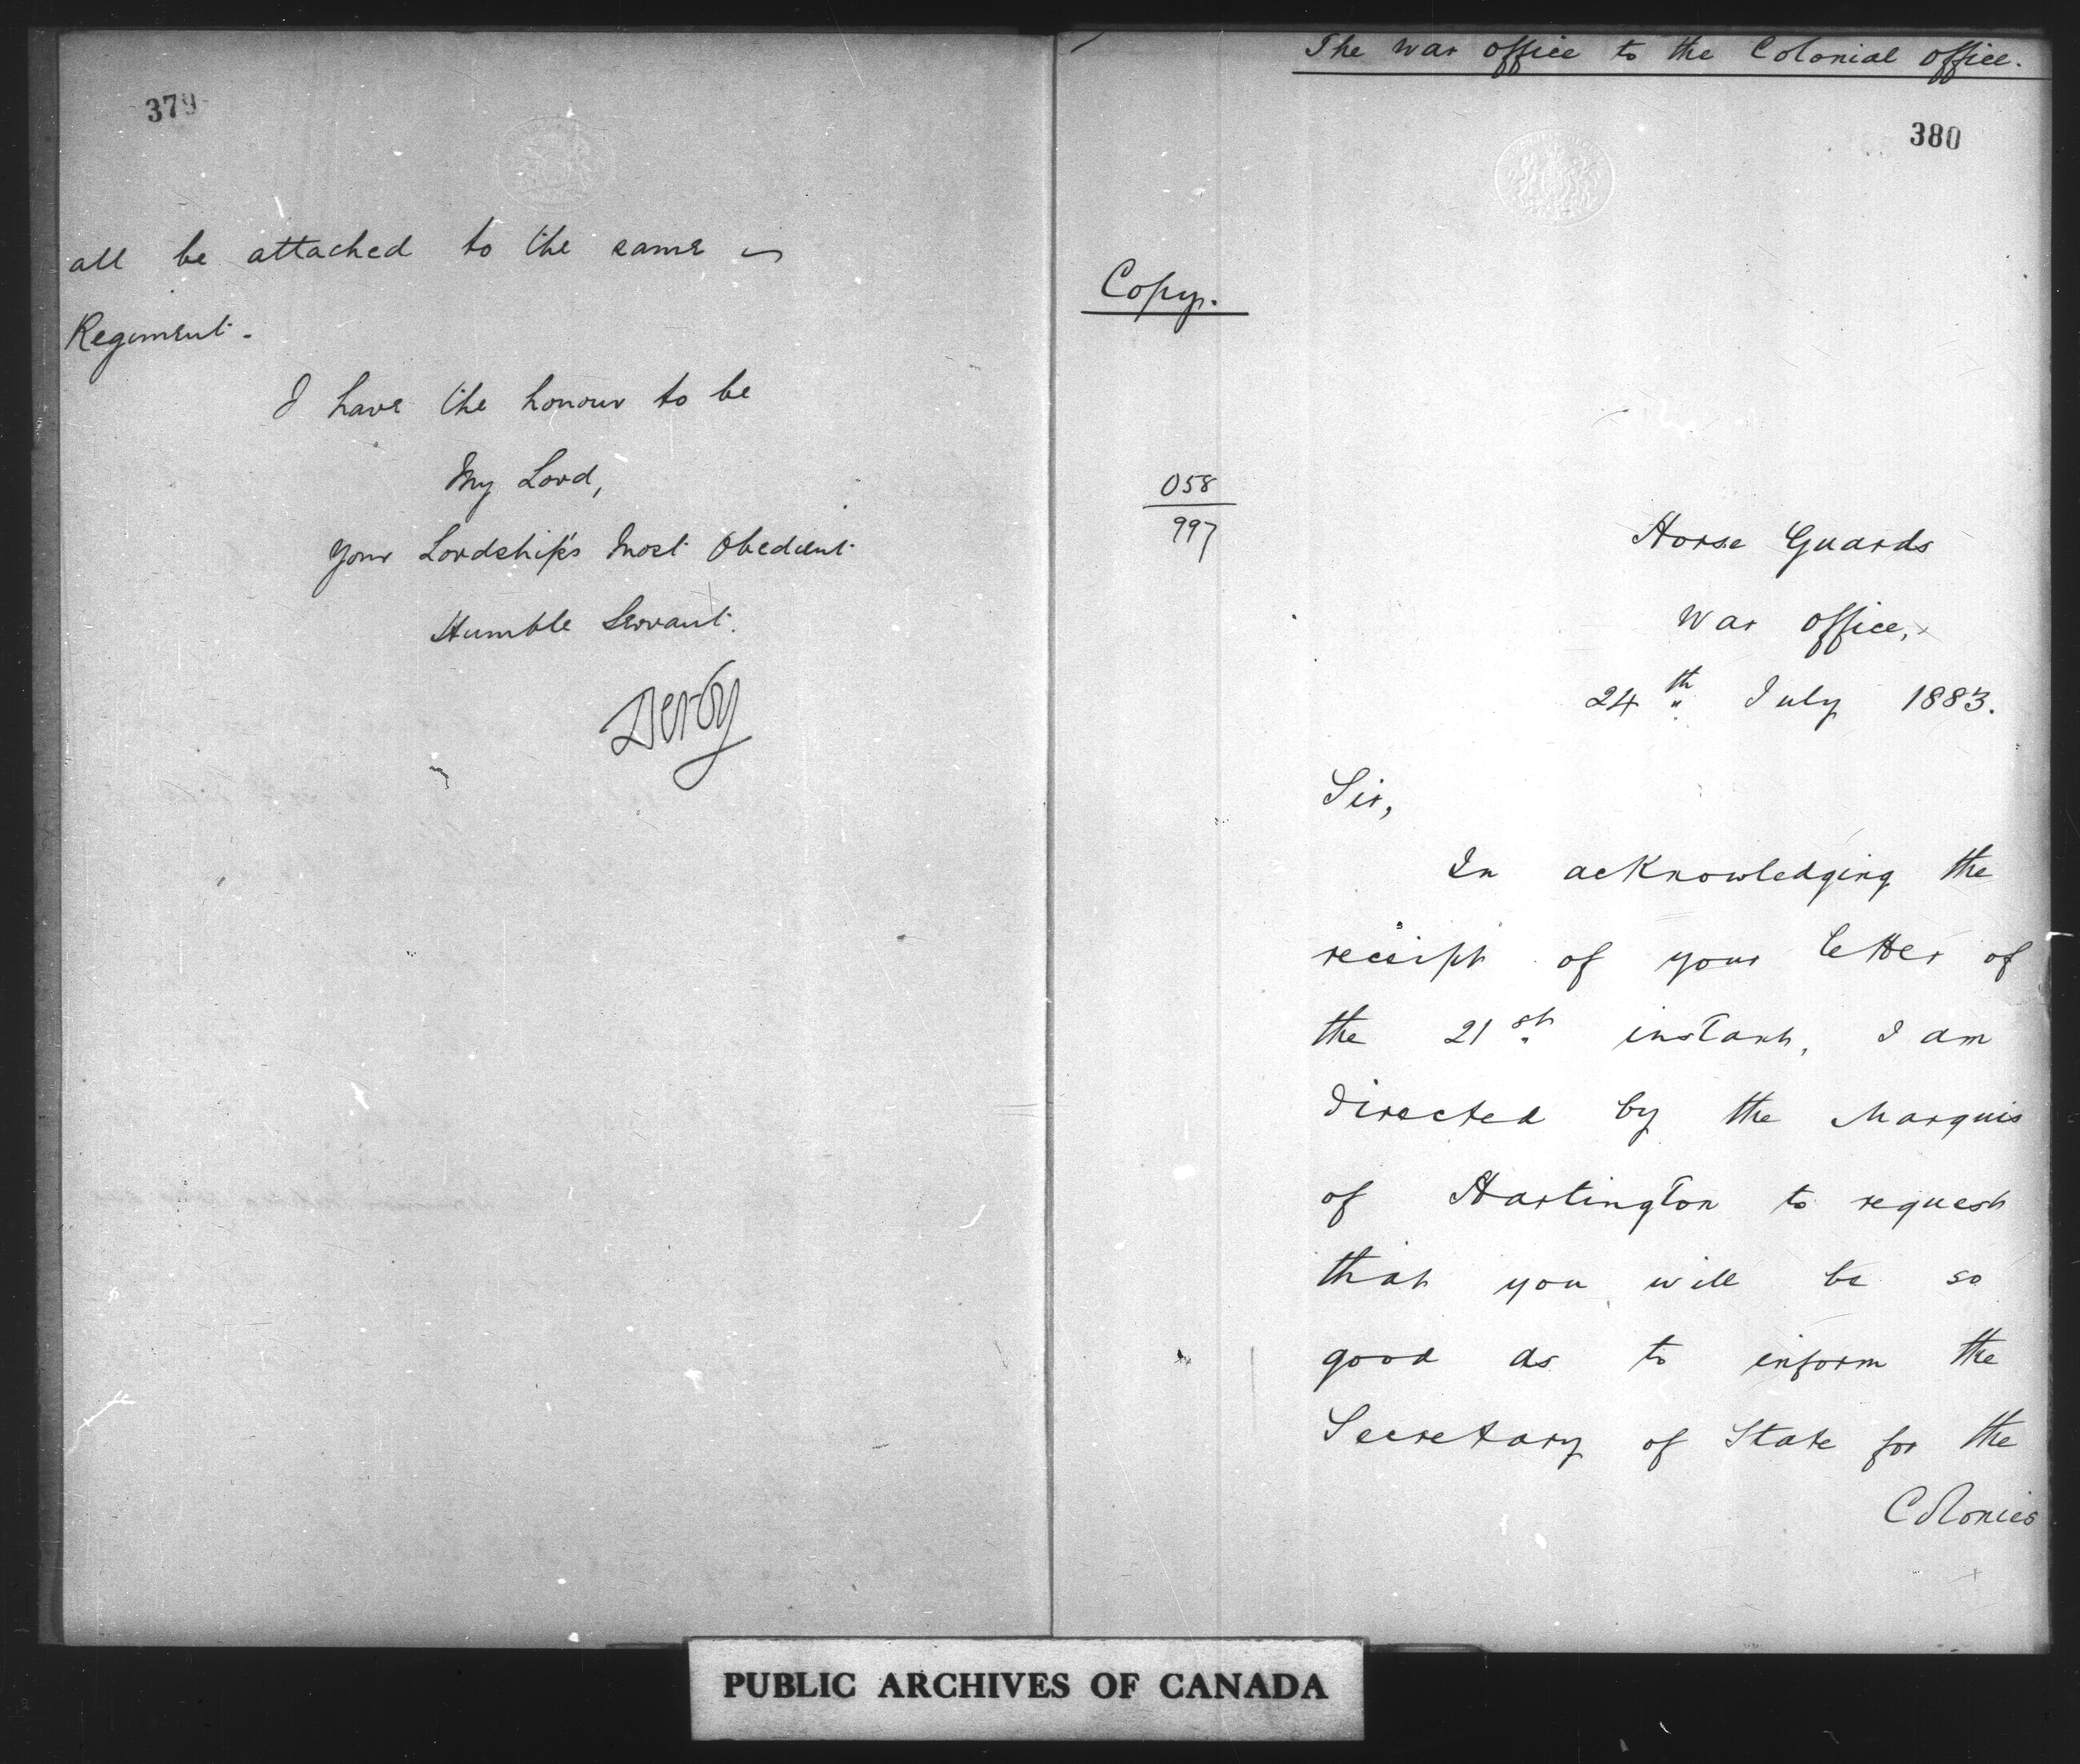 379
all be attached to the same
Regiment.
I have the honour to be
My Lord,
Your Lordship's Most Obedient
Humble Servant.
Derby
The War Office to the Colonial Office.
380
Copy.
058
997
Horse Guards
War Office,
24th July 1883.
Sir,
In acknowledging the
receipt of your letter of
the 21st instant, I am
directed by the Marquis
of Hartington to request
that you will be so
good as to inform the
Secretary of State for the
Colonies
PUBLIC ARCHIVES OF CANADA